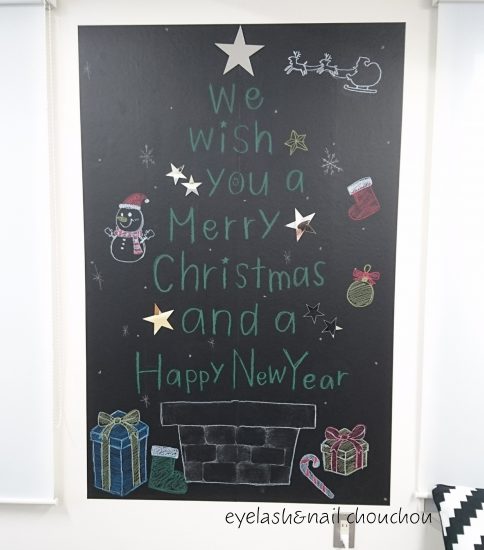 We
wish
you a
Merry
Christmas
and a
Happy New Year
eyelash&nail chouchou